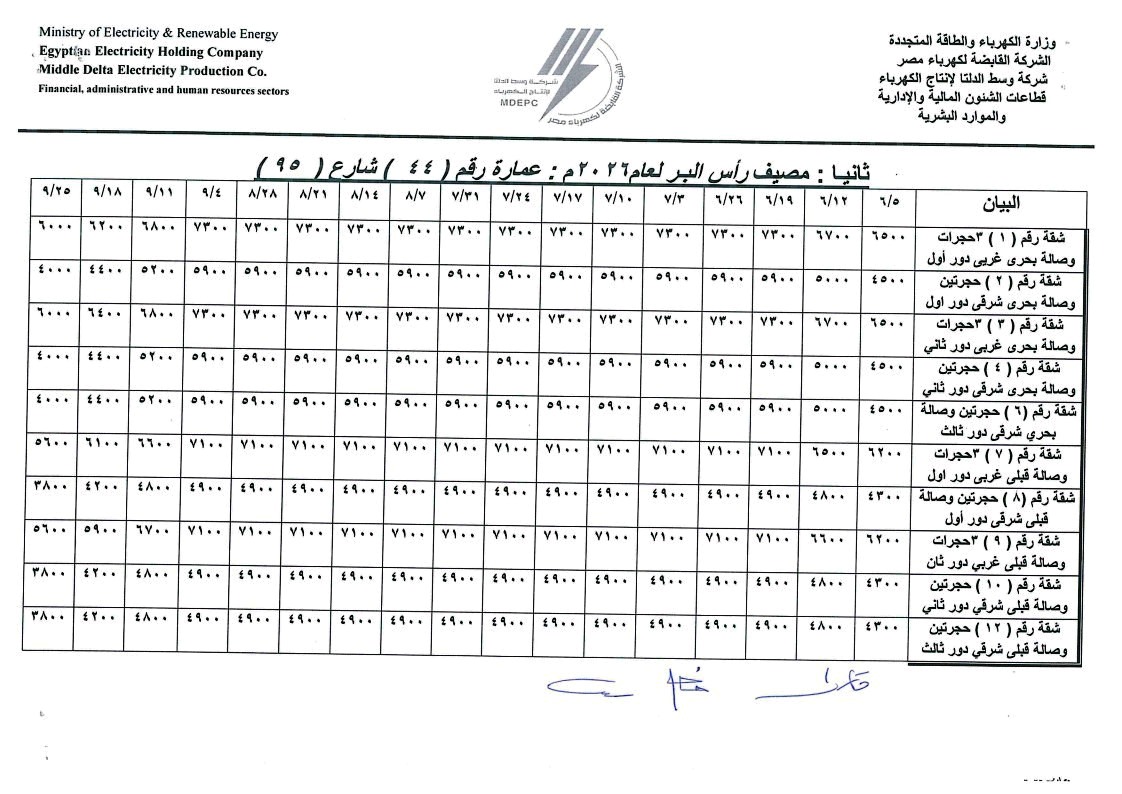 Ministry of Electricity & Renewable Energy
Egyptian Electricity Holding Company
Middle Delta Electricity Production Co.
Financial, administrative and human resources sectors
شركة وسط الدلتا
لإنتاج الكهرباء
MDEPC
الشركة القابضة لكهرباء مصر
وزارة الكهرباء والطاقة المتجددة
الشركة القابضة لكهرباء مصر
شركة وسط الدلتا لإنتاج الكهرباء
قطاعات الشئون المالية والإدارية
والموارد البشرية
ثانيا : مصيف رأس البر لعام ٢٠٢٦م : عمارة رقم ( ٤٤ ) شارع ( ٩٥ )
البيان ٦/٥ ٦/١٢ ٦/١٩ ٦/٢٦ ٧/٣ ٧/١٠ ٧/١٧ ٧/٢٤ ٧/٣١ ٨/٧ ٨/١٤ ٨/٢١ ٨/٢٨ ٩/٤ ٩/١١ ٩/١٨ ٩/٢٥
شقة رقم ( ١ ) ٣حجرات ٦٥٠٠ ٦٧٠٠ ٧٣٠٠ ٧٣٠٠ ٧٣٠٠ ٧٣٠٠ ٧٣٠٠ ٧٣٠٠ ٧٣٠٠ ٧٣٠٠ ٧٣٠٠ ٧٣٠٠ ٧٣٠٠ ٧٣٠٠ ٦٨٠٠ ٦٢٠٠ ٦٠٠٠
وصالة بحرى غربى دور أول
شقة رقم ( ٢ ) حجرتين ٤٥٠٠ ٥٠٠٠ ٥٩٠٠ ٥٩٠٠ ٥٩٠٠ ٥٩٠٠ ٥٩٠٠ ٥٩٠٠ ٥٩٠٠ ٥٩٠٠ ٥٩٠٠ ٥٩٠٠ ٥٩٠٠ ٥٩٠٠ ٥٢٠٠ ٤٤٠٠ ٤٠٠٠
وصالة بحرى شرقى دور اول
شقة رقم ( ٣ ) ٣حجرات ٦٥٠٠ ٦٧٠٠ ٧٣٠٠ ٧٣٠٠ ٧٣٠٠ ٧٣٠٠ ٧٣٠٠ ٧٣٠٠ ٧٣٠٠ ٧٣٠٠ ٧٣٠٠ ٧٣٠٠ ٧٣٠٠ ٧٣٠٠ ٦٨٠٠ ٦٤٠٠ ٦٠٠٠
وصالة بحرى غربى دور ثاني
شقة رقم ( ٤ ) حجرتين ٤٥٠٠ ٥٠٠٠ ٥٩٠٠ ٥٩٠٠ ٥٩٠٠ ٥٩٠٠ ٥٩٠٠ ٥٩٠٠ ٥٩٠٠ ٥٩٠٠ ٥٩٠٠ ٥٩٠٠ ٥٩٠٠ ٥٩٠٠ ٥٢٠٠ ٤٤٠٠ ٤٠٠٠
وصالة بحرى شرقى دور ثاني
شقة رقم (٦ ) حجرتين وصالة ٤٥٠٠ ٥٠٠٠ ٥٩٠٠ ٥٩٠٠ ٥٩٠٠ ٥٩٠٠ ٥٩٠٠ ٥٩٠٠ ٥٩٠٠ ٥٩٠٠ ٥٩٠٠ ٥٩٠٠ ٥٩٠٠ ٥٩٠٠ ٥٢٠٠ ٤٤٠٠ ٤٠٠٠
بحري شرقى دور ثالث
شقة رقم ( ٧ ) ٣حجرات ٦٢٠٠ ٦٥٠٠ ٧١٠٠ ٧١٠٠ ٧١٠٠ ٧١٠٠ ٧١٠٠ ٧١٠٠ ٧١٠٠ ٧١٠٠ ٧١٠٠ ٧١٠٠ ٧١٠٠ ٧١٠٠ ٦٦٠٠ ٦١٠٠ ٥٦٠٠
وصالة قبلى غربى دور اول
شقة رقم (٨ ) حجرتين وصالة ٤٣٠٠ ٤٨٠٠ ٤٩٠٠ ٤٩٠٠ ٤٩٠٠ ٤٩٠٠ ٤٩٠٠ ٤٩٠٠ ٤٩٠٠ ٤٩٠٠ ٤٩٠٠ ٤٩٠٠ ٤٩٠٠ ٤٩٠٠ ٤٨٠٠ ٤٢٠٠ ٣٨٠٠
قبلى شرقى دور أول
شقة رقم ( ٩ ) ٣حجرات ٦٢٠٠ ٦٦٠٠ ٧١٠٠ ٧١٠٠ ٧١٠٠ ٧١٠٠ ٧١٠٠ ٧١٠٠ ٧١٠٠ ٧١٠٠ ٧١٠٠ ٧١٠٠ ٧١٠٠ ٧١٠٠ ٦٧٠٠ ٥٩٠٠ ٥٦٠٠
وصالة قبلى غربي دور ثان
شقة رقم ( ١٠ ) حجرتين ٤٣٠٠ ٤٨٠٠ ٤٩٠٠ ٤٩٠٠ ٤٩٠٠ ٤٩٠٠ ٤٩٠٠ ٤٩٠٠ ٤٩٠٠ ٤٩٠٠ ٤٩٠٠ ٤٩٠٠ ٤٩٠٠ ٤٩٠٠ ٤٨٠٠ ٤٢٠٠ ٣٨٠٠
وصالة قبلى شرقي دور ثاني
شقة رقم ( ١٢ ) حجرتين ٤٣٠٠ ٤٨٠٠ ٤٩٠٠ ٤٩٠٠ ٤٩٠٠ ٤٩٠٠ ٤٩٠٠ ٤٩٠٠ ٤٩٠٠ ٤٩٠٠ ٤٩٠٠ ٤٩٠٠ ٤٩٠٠ ٤٩٠٠ ٤٨٠٠ ٤٢٠٠ ٣٨٠٠
وصالة قبلى شرقي دور ثالث